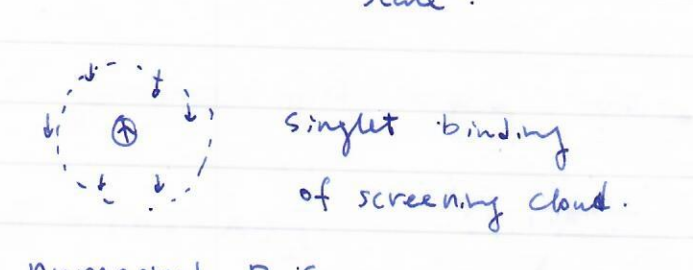 singlet binding
of screening cloud.